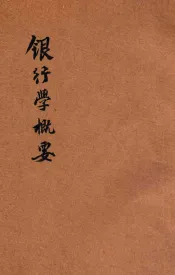 銀行學概要